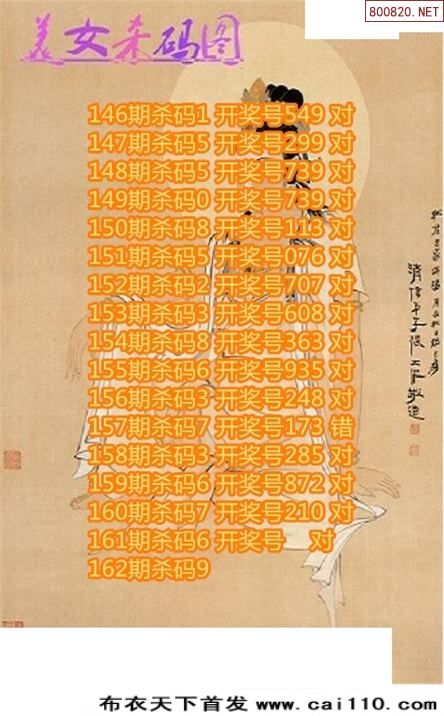 800820.NET
美女杀码图
146期杀码1 开奖号549 对
147期杀码5 开奖号299 对
148期杀码5 开奖号739 对
149期杀码0 开奖号739 对
150期杀码8 开奖号113 对
151期杀码5 开奖号076 对
152期杀码2 开奖号707 对
153期杀码3 开奖号608 对
154期杀码8 开奖号363 对
155期杀码6 开奖号935 对
156期杀码3 开奖号248 对
157期杀码7 开奖号173 错
158期杀码3 开奖号285 对
159期杀码6 开奖号872 对
160期杀码7 开奖号210 对
161期杀码6 开奖号 对
162期杀码9
布衣天下首发 www.cai110.com